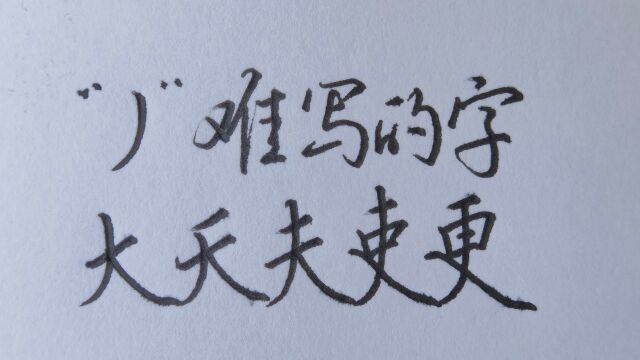 "丿"难写的字
大天夫吏更